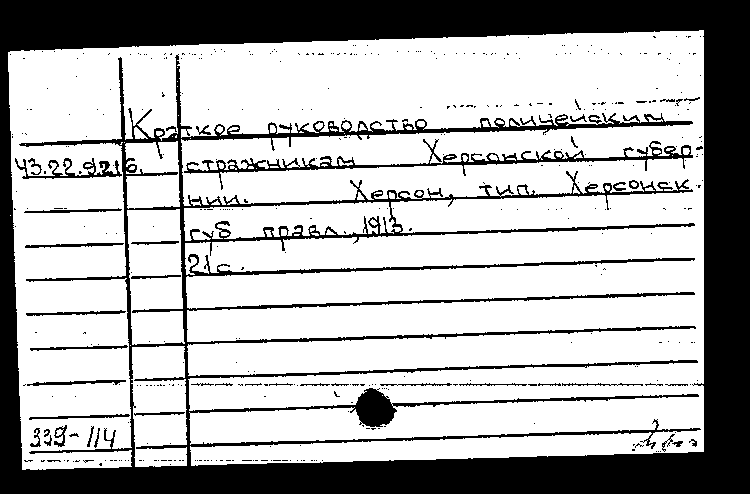 Краткое руководство полицейским
Ч3.22.9216. стражникам Херсонской губер-
нии. Херсон, тип. Херсонск.
губ правл., 1913.
21с.
339-114